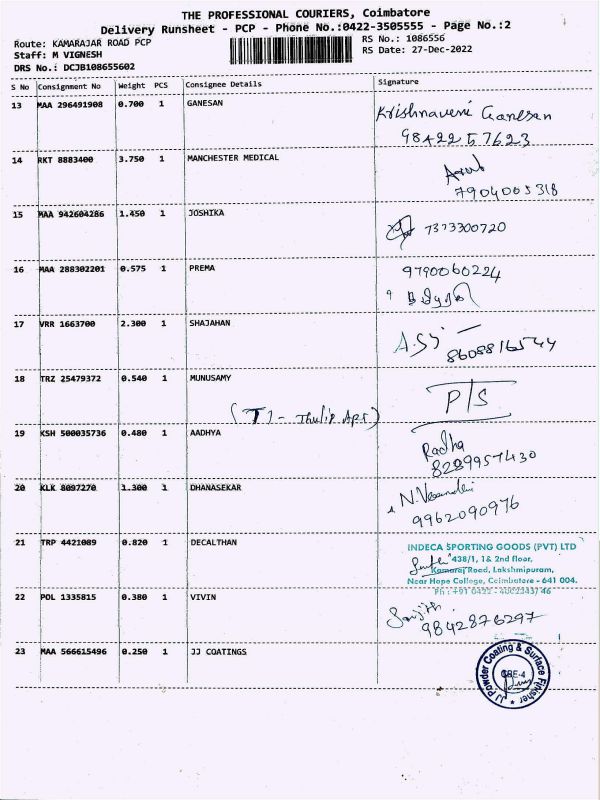 THE PROFESSIONAL COURIERS, Coimbatore
Delivery Runsheet - PCP - Phone No.:0422-3505555 - Page No.:2
Route: KAMARAJAR ROAD PCP
RS No.: 1086556
Staff: M VIGNESH
RS Date: 27-Dec-2022
DRS No.: DCJB108655602
S No Consignment No Weight PCS Consignee Details Signature
13 MAA 296491908 0.700 1 GANESAN
Krishnaveni Ganesan
98422 57623
14 RKT 8883400 3.750 1 MANCHESTER MEDICAL
7904005318
15 MAA 942604286 1.450 1 JOSHIKA
7373300720
16 MAA 288302201 0.575 1 PREMA
9790060224
17 VRR 1663700 2.300 1 SHAJAHAN
8608816544
18 TRZ 25479372 0.540 1 MUNUSAMY
P/S
(T1 - Thulip Apt)
19 KSH 500035736 0.480 1 AADHYA
Radha
8289957430
20 KLK 8097270 1.300 1 DHANASEKAR
9962090976
21 TRP 4421089 0.820 1 DECALTHAN
INDECA SPORTING GOODS (PVT) LTD
438/1, 1& 2nd floor,
Kamaraj Road, Lakshmipuram,
Near Hope College, Coimbatore - 641 004.
22 POL 1335815 0.380 1 VIVIN
Sanjith
9842876297
23 MAA 566615496 0.250 1 JJ COATINGS
JJ Powder Coating & Surface Finisher
CBE-4